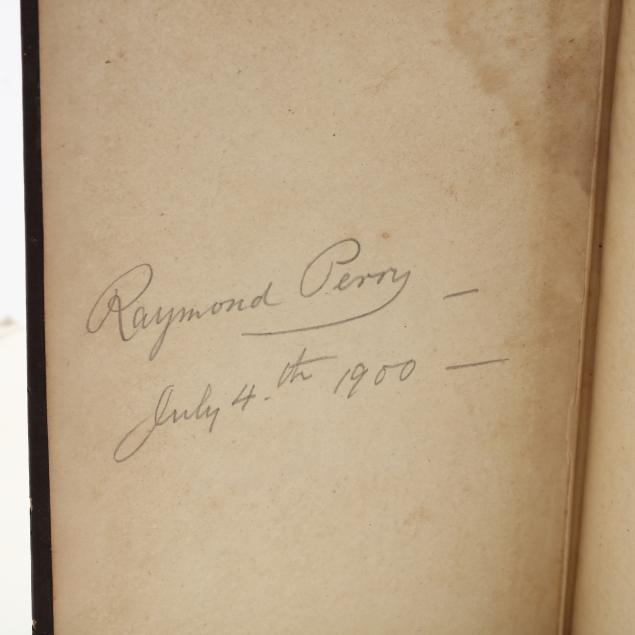 Raymond Perry —
July 4.th 1900 —